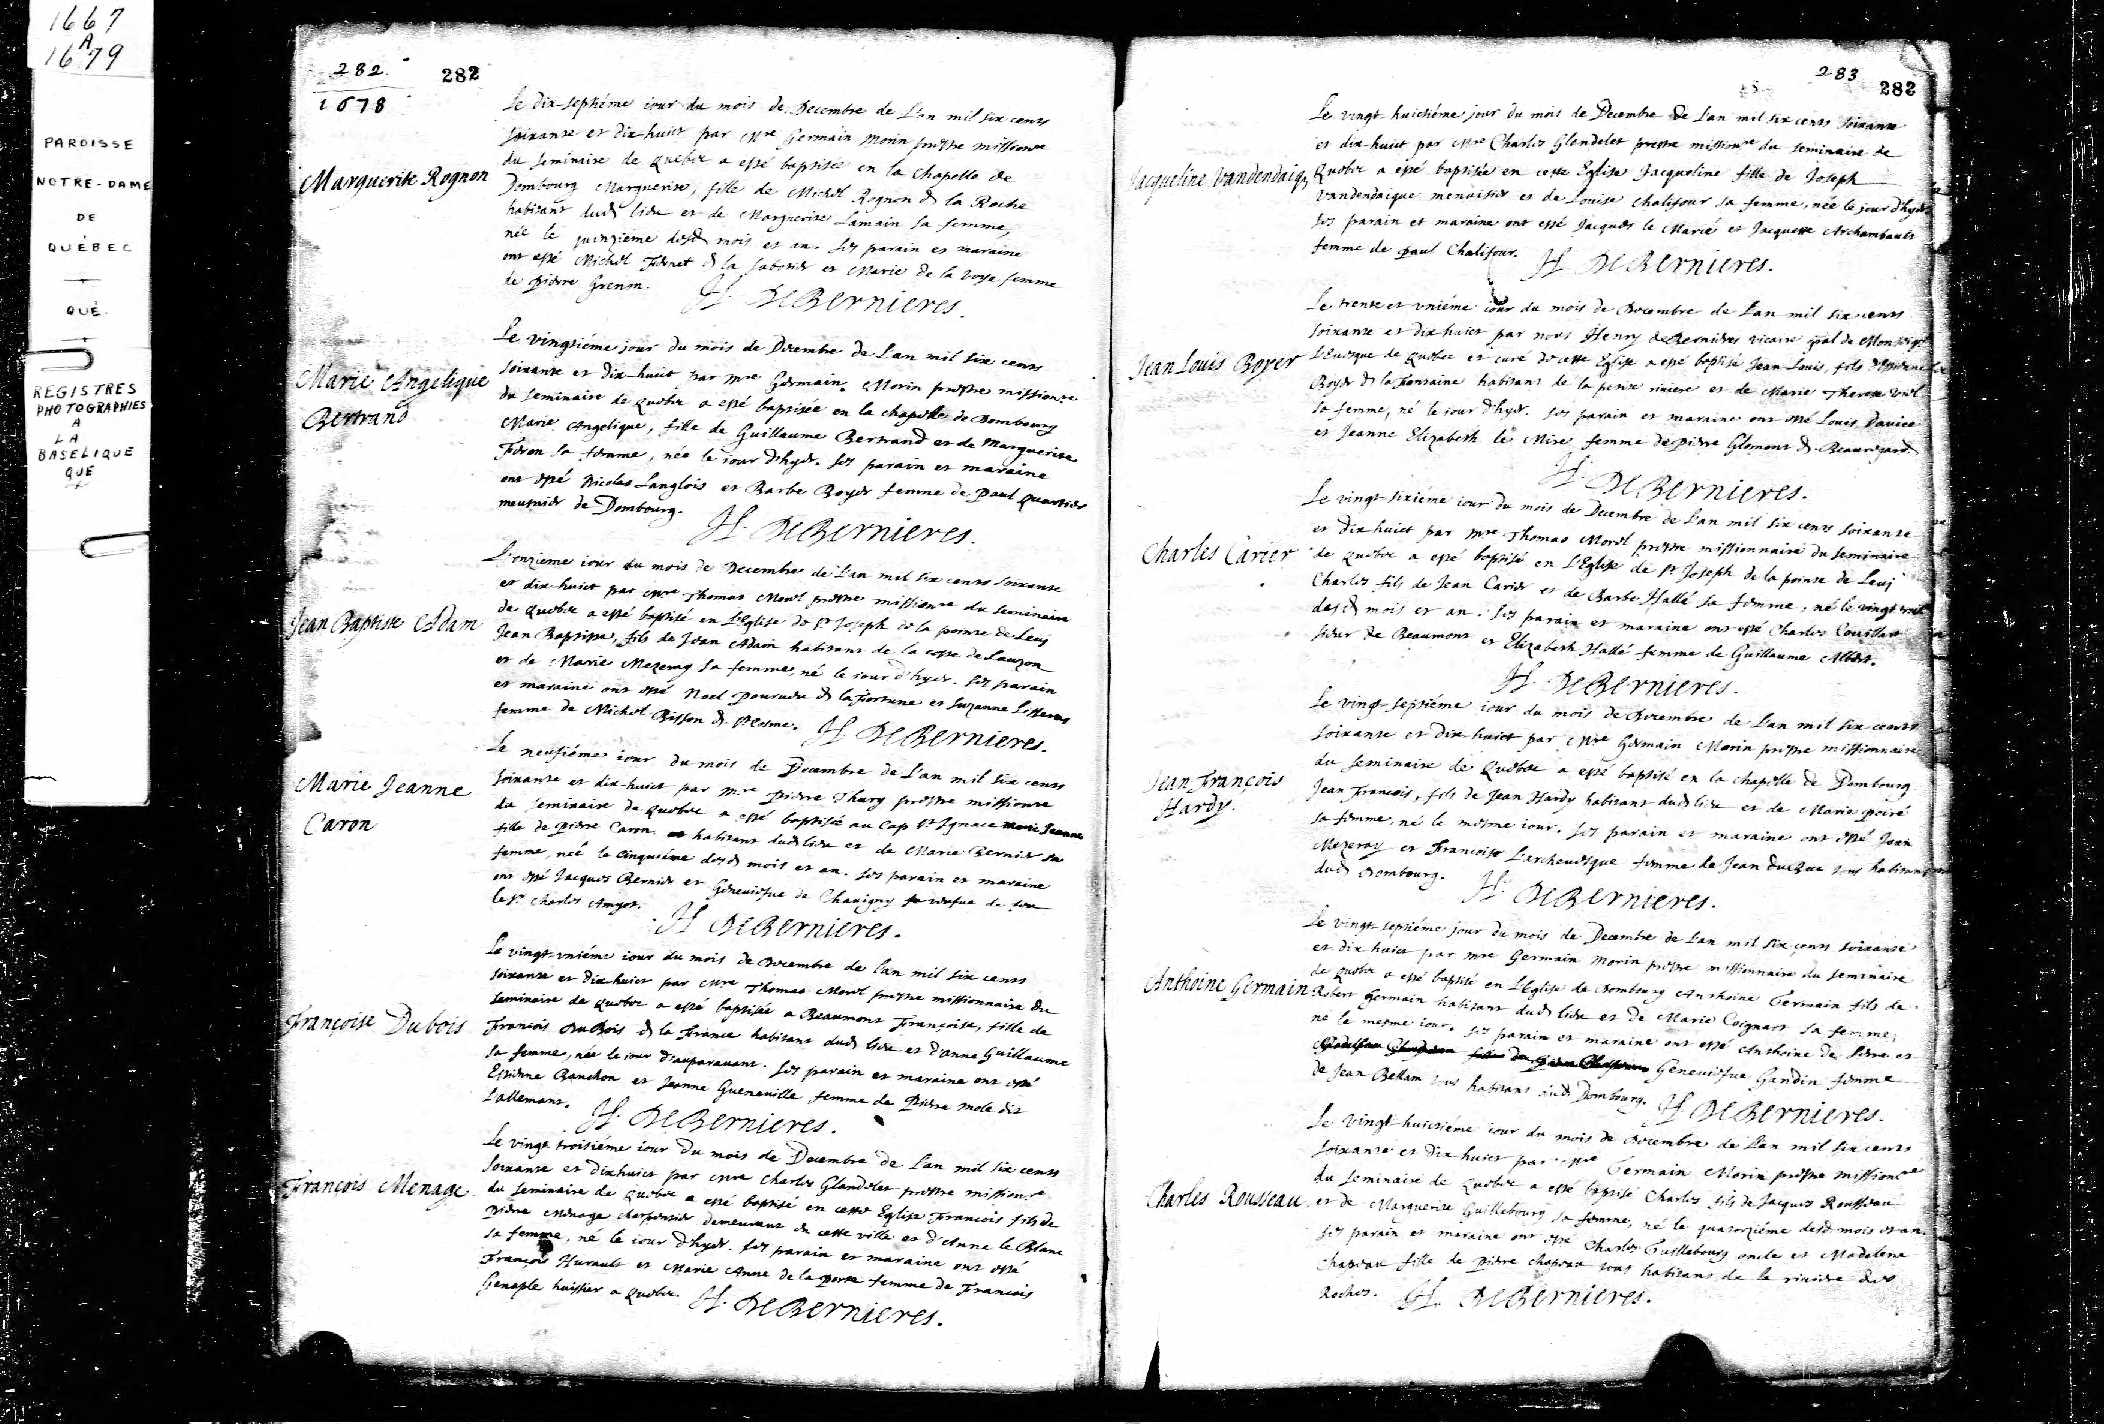 1667
A
1679
PAROISSE
NOTRE-DAME
DE
QUÉBEC
QUÉ.
REGISTRES
PHOTOGRAPHIES
A
LA
BASELIQUE
QUE
282.
282
1678
Marguerite Rognon
Le dix-septiéme iour du mois de Decembre de L'an mil six cents
soixante et dix-huict par Mre Germain Morin prestre missionre
du seminaire de Quebec a esté baptisée en la chapelle de
Dombourg Marguerite, fille de Michel Rognon dt la Roche
habitant dudt lieu et de Marguerite Lamain sa femme,
née le quinziéme desdt mois et an. ses parain et maraine
ont esté Michel dt la et Marie de la Voye femme
de pierre Grenon. H. DeBernieres.
Marie Angelique
Bertrand
Le vingtiéme jour du mois de Decembre de L'an mil six cents
soixante et dix-huict par Mre Germain Morin prestre missionre
du seminaire de Quebec a esté baptisée en la chapelle de Dombourg
Marie Angelique, fille de Guillaume Bertrand et de Marguerite
sa femme, née le iour d'hyer. ses parain et maraine
ont esté Nicolas Langlois et Barbe Boyer femme de Paul Quartier
meusnier de Dombourg.
H. DeBernieres.
Jean Baptiste Adam
L'onzieme iour du mois de Decembre de L'an mil six cents soixante
et dix-huict par Mre Thomas Morel prestre missionre du seminaire
de Quebec a esté baptisé en L'Eglise de St Joseph de la pointe de Levy
Jean Baptiste, fils de Jean Adam habitant de la coste de Lauzon
et de Marie Mezeray sa femme, né le iour d'hyer. ses parain
et maraine ont esté Noel dt la fortune et Suzanne
femme de Michel Bisson dt St Cosme. H. DeBernieres.
Marie Jeanne
Caron
Le neufiéme iour du mois de Decembre de L'an mil six cents
soixante et dix-huict par Mre Pierre Thury prestre missionre
du seminaire de Quebec a esté baptisée au Cap St Ignace Marie Jeanne
fille de Pierre Caron habitant dudt lieu et de Marie Bernier sa
femme, née le cinquiéme desdt mois et an. ses parain et maraine
ont esté Jacques Bernier et Geneviefve de Chavigny vefve de feu
le Sr Charles Amyot.
H. DeBernieres.
Françoise Dubois
Le vingt-uniéme iour du mois de Decembre de l'an mil six cents
soixante et dix-huict par Mre Thomas Morel prestre missionnaire du
seminaire de Quebec a esté baptisée a Beaumont Françoise, fille de
François DuBois dt la France habitant dudt lieu et d'Anne Guillaume
sa femme, née le iour d'auparavant. ses parain et maraine ont esté
Estienne Banchon et Jeanne Gueneville femme de Pierre Mole dit
Lallemant. H. DeBernieres.
François Menage
Le vingt troisiéme iour du mois de Decembre de L'an mil six cents
soixante et dixhuict par Mre Charles Glandelet prestre missionre
du seminaire de Quebec a esté baptisé en cette Eglise François fils de
Pierre Menage charpentier demeurant en cette ville et d'Anne le Blanc
sa femme, né le iour d'hyer. ses parain et maraine ont esté
François Hurault et Marie Anne de la porte femme de François
Genaple huissier a Quebec. H. DeBernieres.
283
282
Jacqueline Vandendaigue
Le vingt huictiéme jour du mois de Decembre de L'an mil six cents soixante
et dix-huict par Mre Charles Glandelet prestre missionre du seminaire de
Quebec a esté baptisée en cette Eglise Jacqueline fille de Joseph
Vandendaigue menuisier et de Louise Chalifour sa femme, née le jour d'hyer
ses parain et maraine ont esté Jacques le Marié et Jacquette Archambault
femme de paul Chalifour. H. DeBernieres.
Jean Louis Boyer
Le trente et uniéme iour du mois de Decembre de L'an mil six cents
soixante et dix-huict par nous Henry deBernieres vicaire gnal de Monseigr
L'Evesque de Quebec et curé de cette Eglise a esté baptisé Jean Louis, fils d'Estienne
Boyer dt la fontaine habitant de la petite riviere et de Marie Therese
sa femme, né le iour d'hyer. ses parain et maraine ont esté Louis
et Jeanne Elizabeth le Mire femme de pierre Glemont dt Beauregard.
H. DeBernieres.
Charles Carier
Le vingt-sixiéme iour du mois de Decembre de L'an mil six cents soixante
et dix-huict par Mre Thomas Morel prestre missionnaire du seminaire
de Quebec a esté baptisé en L'Eglise de St Joseph de la pointe de Levy
Charles fils de Jean Carier et de Barbe Hallé sa femme, né le vingt
desdt mois et an. ses parain et maraine ont esté Charles Couillart
sieur de Beaumont et Elizabeth Hallé femme de Guillaume Albert.
H. DeBernieres.
Jean François
Hardy.
Le vingt-septiéme iour du mois de Decembre de L'an mil six cents
soixante et dix-huict par Mre Germain Morin prestre missionnaire
du seminaire de Quebec a esté baptisé en la chapelle de Dombourg
Jean François, fils de Jean Hardy habitant dudt lieu et de Marie poiré
sa femme, né le mesme iour. ses parain et maraine ont esté Jean
Mezeray et Françoise Larchevesque femme de Jean tous habitans
dudt Dombourg. H. DeBernieres.
Anthoine Germain
Le vingt-septiéme jour du mois de Decembre de L'an mil six cents soixante
et dix huict par Mre Germain Morin prestre missionnaire du seminaire
de Quebec a esté baptisé en L'Eglise de Dombourg Anthoine Germain fils de
Robert Germain habitant dudt lieu et de Marie Coignart sa femme,
né le mesme iour. ses parain et maraine ont esté Anthoine de et
Geneviefve Gandin femme
de Jean Bellam tous habitans dudt Dombourg. H. DeBernieres.
Charles Rousseau
Le vingt huictiéme iour du mois de Decembre de L'an mil six cents
soixante et dix huict par Mre Germain Morin prestre missionre
du seminaire de Quebec a esté baptisé Charles, fils de Jacques Rousseau
et de Marguerite Guillebourg sa femme, né le quatorziéme desdt mois et an.
ses parain et maraine ont esté Charles Guillebourg oncle et Madelene
Chapeau fille de pierre chapeau tous habitans de la riviere des
Roches. H. DeBernieres.